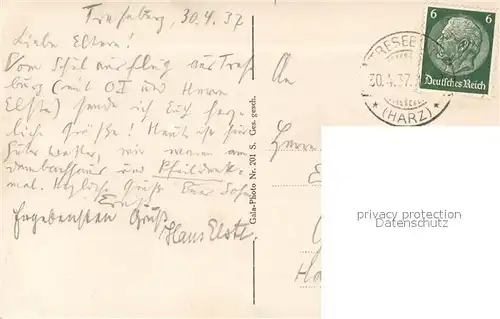 Treseburg, 30.4.37
Liebe Eltern!
Vom Schulausflug aus Trese
burg (mit OI und Herrn
Elste) sende ich Euch herz
liche Grüße! Heut ist sehr
gutes Wetter, wir waren am
Dambachhaus und Pfeildenk
mal. Herzliche Grüße Euer Sohn
Ernst.
Ergebensten Gruß
Hans Elste.
An
Herrn
Gala-Photo Nr. 201 S. Ges. gesch.
6 6
Deutsches Reich
TRESEB
30.4.37.
* (HARZ) *
privacy protection
www.oldthing.de